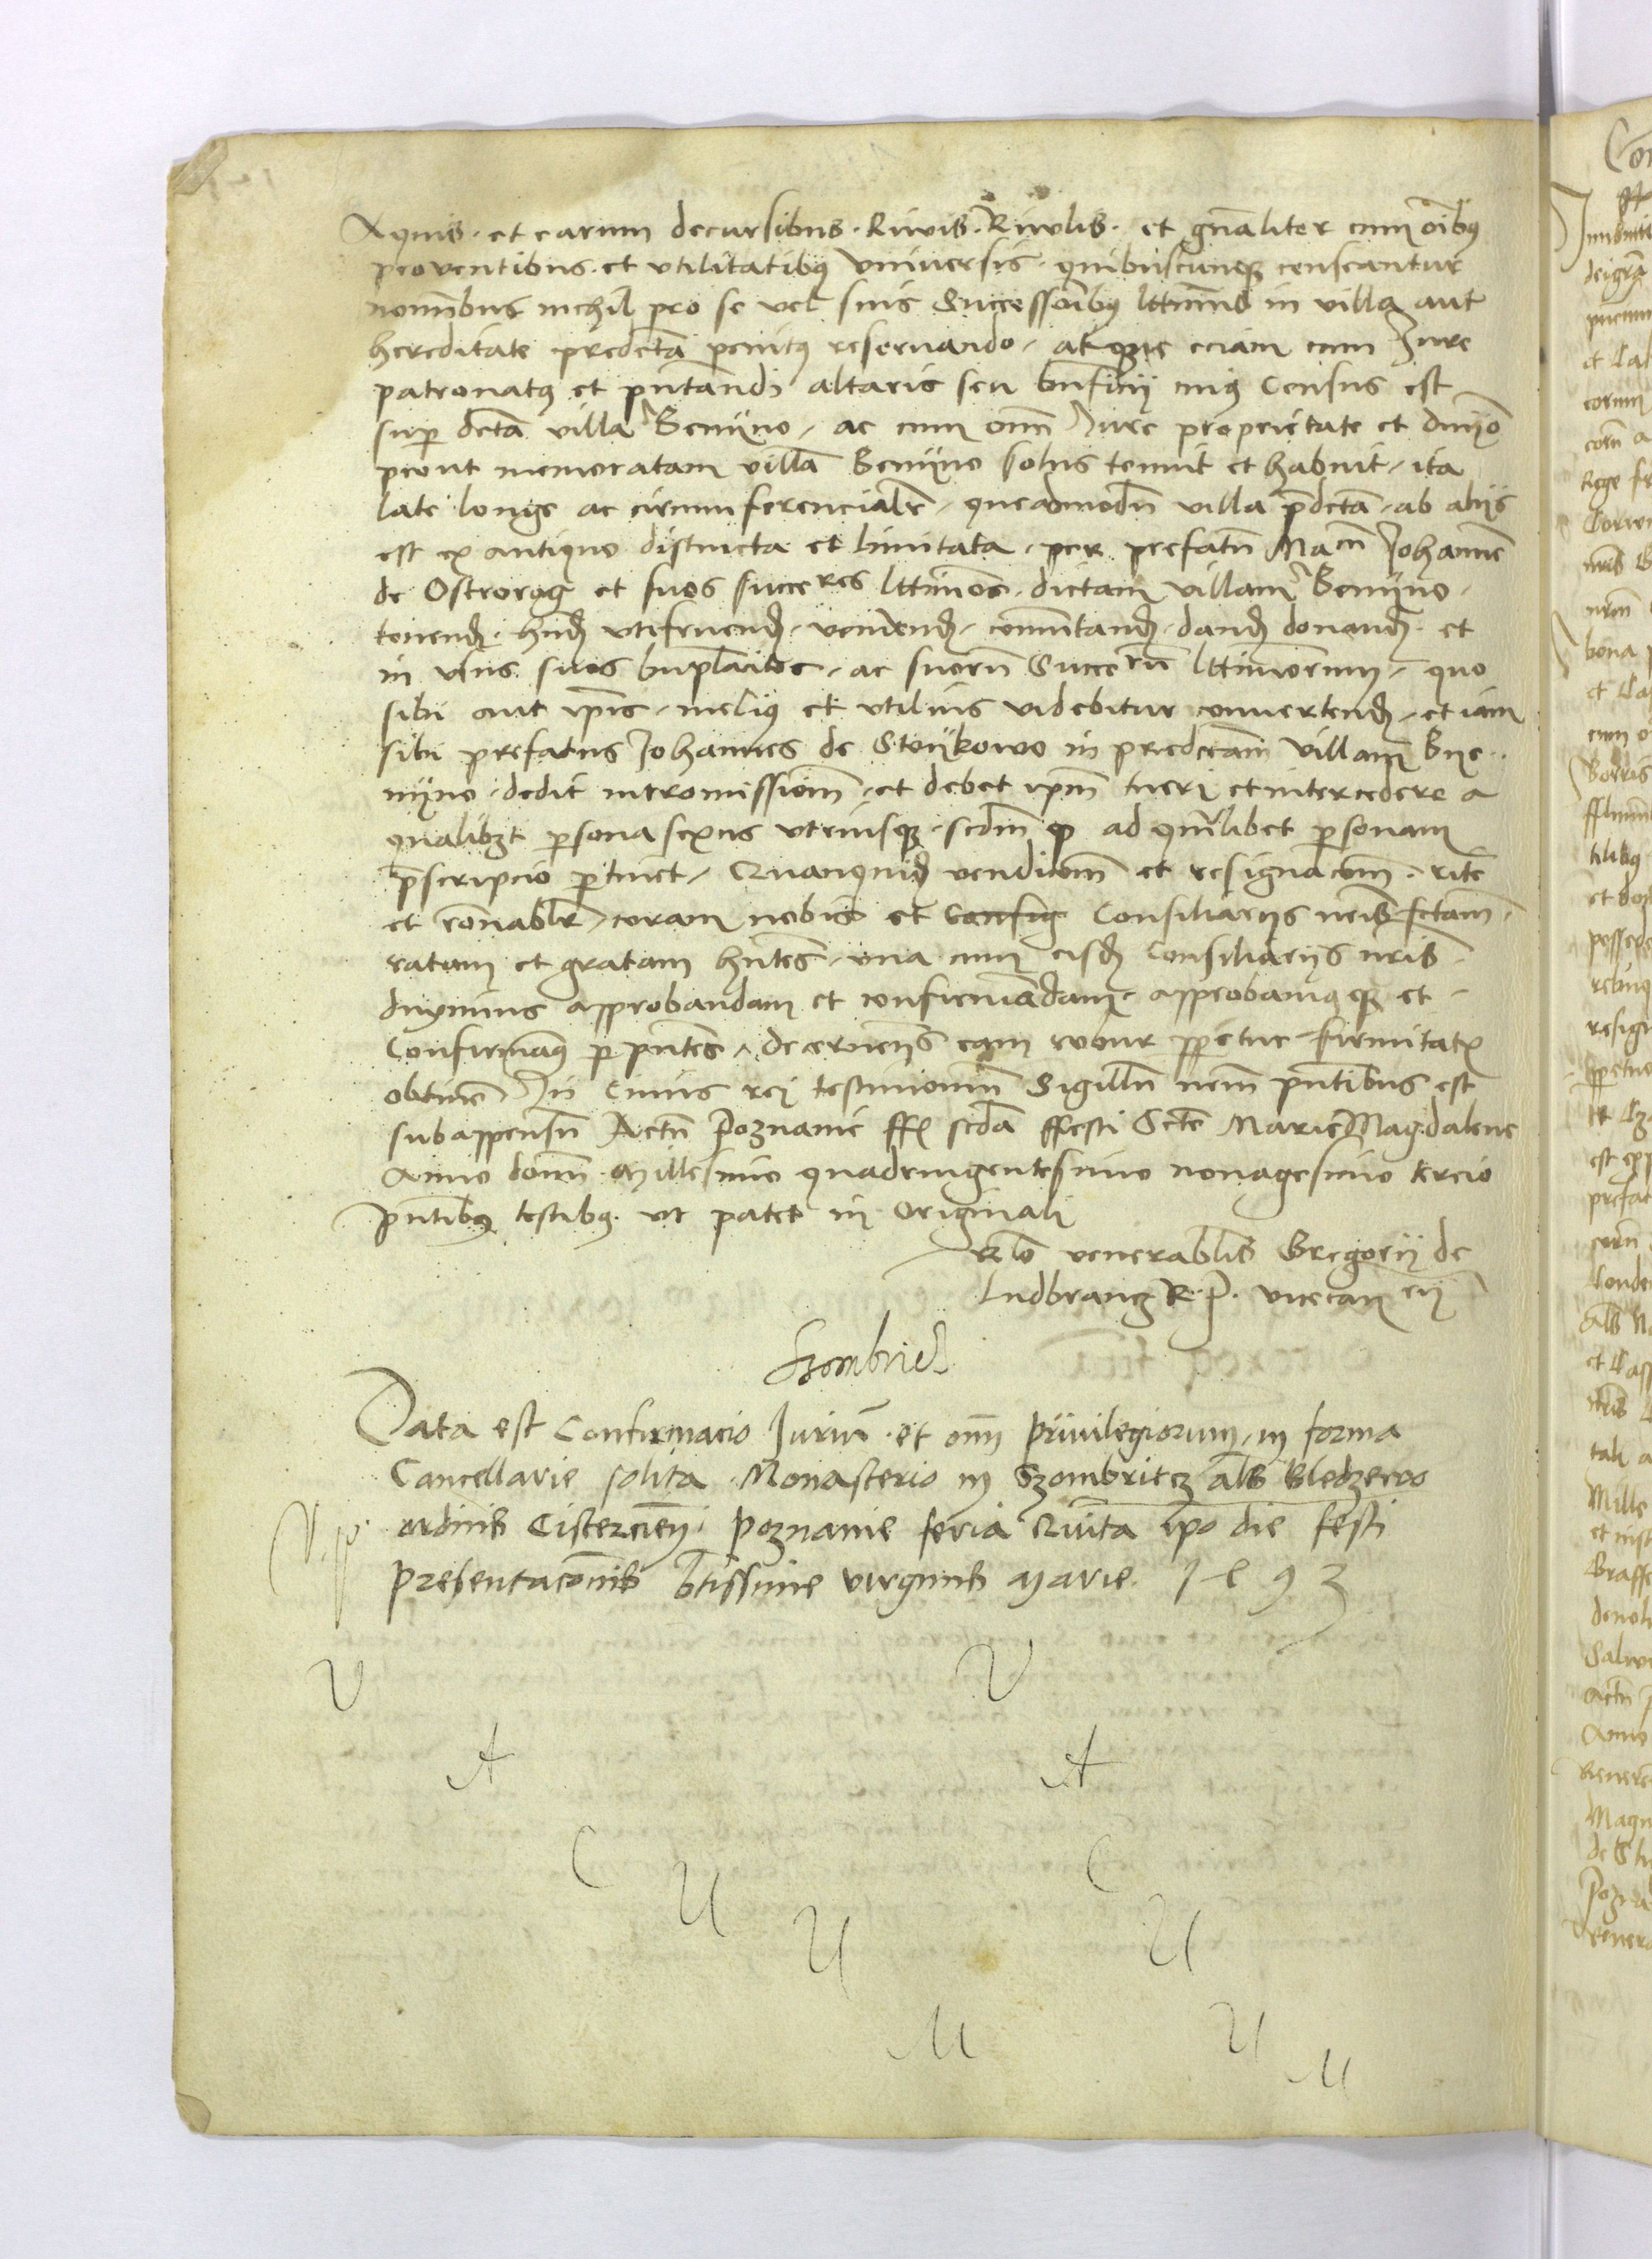 Aquis · et earum decursibus · Rivis · Rivulis · et gnaliter cum oibus
proventibus · et utilitatibus universis · quibuscunque censeantur
nominibus nichil pro se vel suis Successoribus lttimis in villa aut
hereditate predcta penitus reservando · atque eciam cum Jure
patronatus et pntandi altaris seu bnficij cuius Census est
super dcta villa Benijno · ac cum omni Jure proprietate et dnnio
prout memoratam villa Benijno solus tenuit et habuit · ita
late longe ac circumferencialr · queadmodu villa pdcta · ab alijs
est ex antiquo distincta et limitata · per prefatu Macm Johanne
de Ostrorog et suos succeres lttimos · dictam villam Benijno ·
tenend · hnd utifruend · vendend · comutand · dand donand · et
in usus suos bnplacitos · ac suoru Succeru lttimorum · quo
sibi aut ipis · melius et utilius videbitur convertend · et iam
sibi prefatus Johannes de Stoijkowo in predctam villam Bye
nijno · dedit intromissiom · et debet ipm tueri et intercedere a
qualibet persona sexus utriusque · scdm quod ad quamlibet personam
prescripcio pertinet · Quanquid vendiciom et resignaciom · rite
et ronablr coram nobis et Config Consiliarijs nris fctam ·
ratam et gratam hntes · una cum eisd Consiliarijs nris
duximus approbandam et confirmadam · approbamusque et
Confirmamus per pntes · decernentes eam robur perpetue firmitatis
obtinere Jn Cuius rei testimonium Sigillu nrm pntibus est
subappensu Actu Poznanie ffer scda ffesti Scte Marie Magdalene
Anno domi Millesimo quadringentesimo nonagesimo tercio
pntibus testibus · ut patet in Originali
Rlo venerablis Gregorij de
Ludbrancz R · P · vicecancrij
Szombricz
Data est Confirmacio Juriu · et om Privilegiorum · in forma
Cancellarie solita · Monasterio in Szombritcz als Bledzewo
ordinis Cisterciens · Poznanie feria Quinta ipo die festi
Presentaconis btissime virginis Marie · 1493
V V
A A
C C
U U
U
M U
M